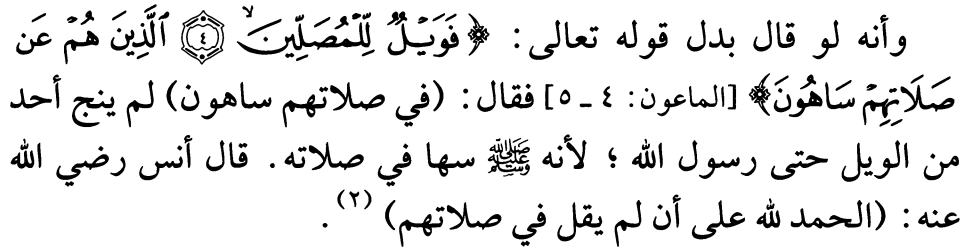 وأنه لو قال بدل قوله تعالى: ﴿فَوَيْلٌ لِّلْمُصَلِّينَ ۙ ٤ ٱلَّذِينَ هُمْ عَن
صَلَاتِهِمْ سَاهُونَ﴾ [الماعون: ٤ ـ ٥] فقال: (في صلاتهم ساهون) لم ينج أحد
من الويل حتى رسول الله ؛ لأنه ﷺ سها في صلاته. قال أنس رضي الله
عنه: (الحمد لله على أن لم يقل في صلاتهم) (٢).